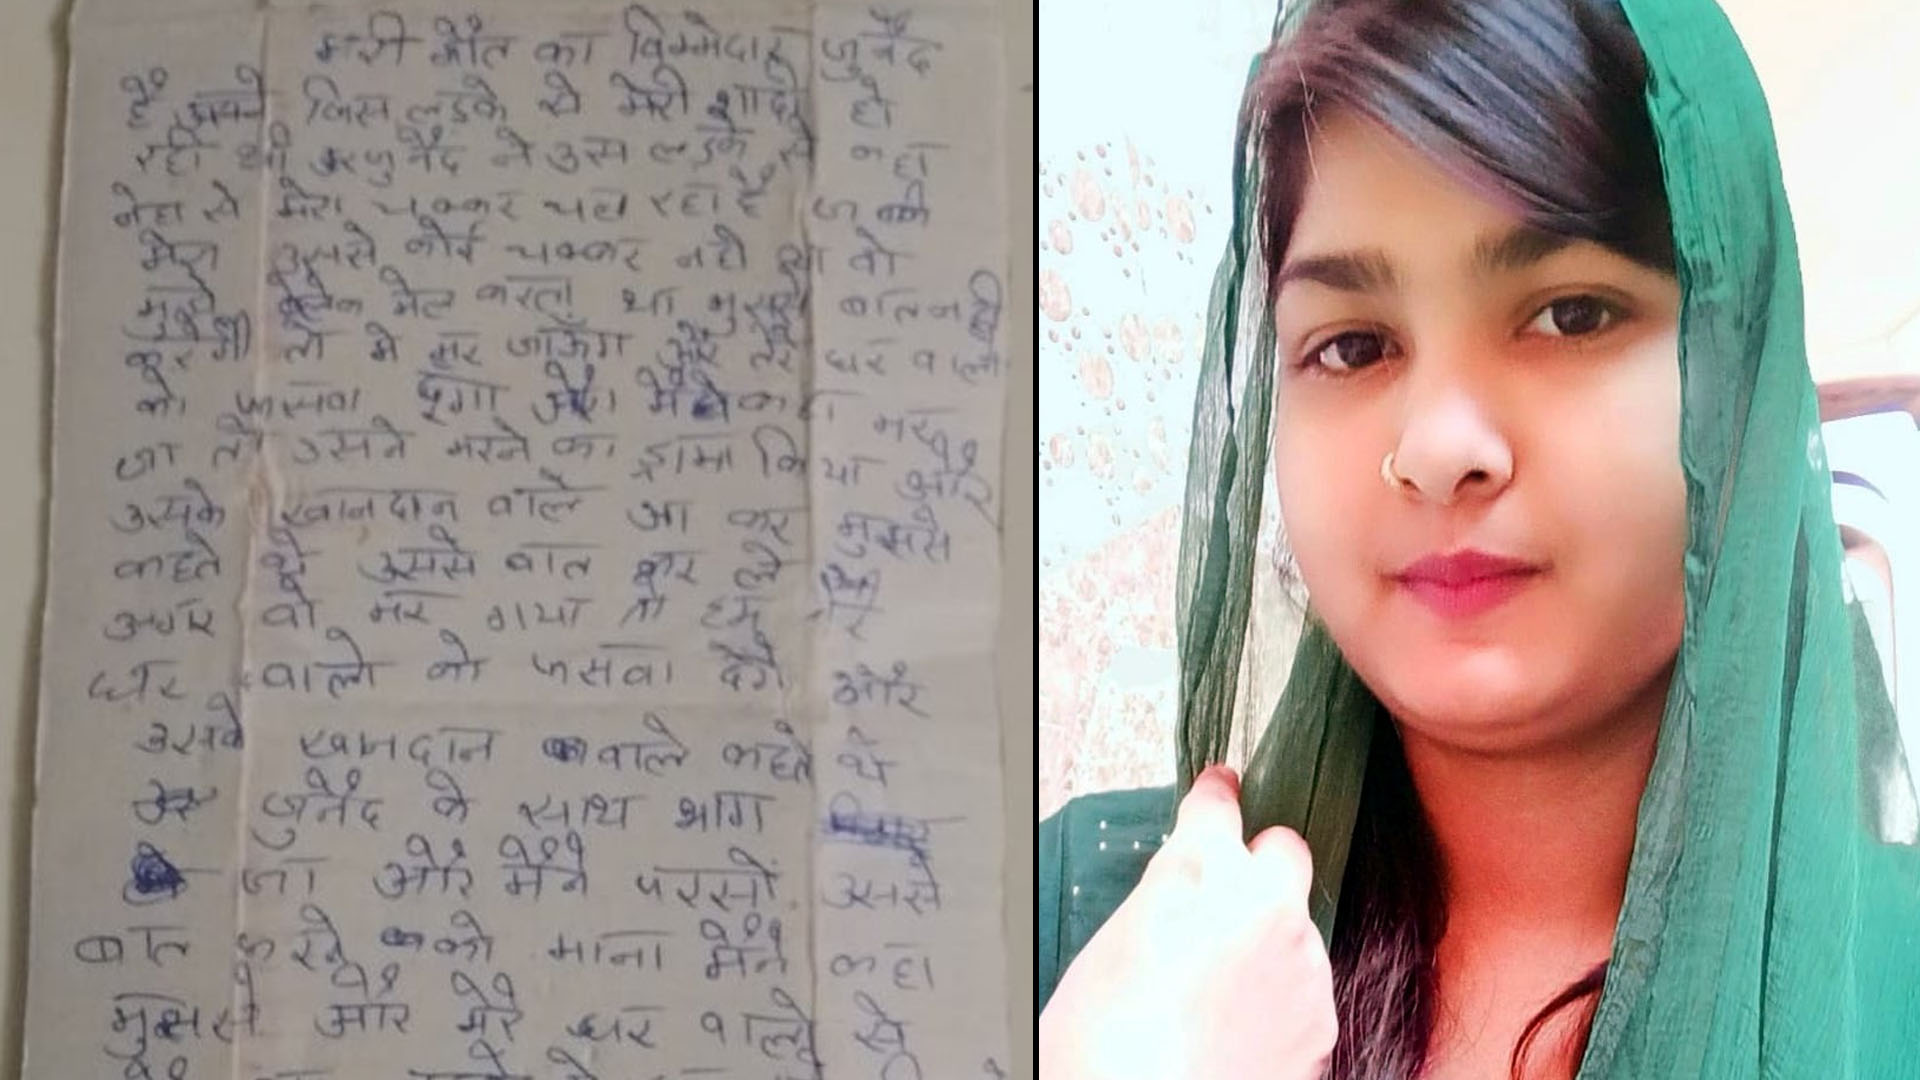 मेरी मौत का जिम्मेदार जुनैद
है जिस लडके से मेरी शादी हो
रही थी जुनैद ने उस लडके से कहा
नेहा से मेरा चक्कर चल रहा है जबकी
मेरा उससे कोई चक्कर नही था वो
मुझे ब्लेक मेल करता था मुझसे बात नही
करेगी तो मे मर जाऊंगा और तेरे घर वालो
को फसवा दूगा और मैने कहा मर
जा तो उसने मरने का ड्रामा किया और
उसके खानदान वाले आ कर मुझसे
कहते थे उससे बात कर ले
अगर वो मर गया तो हम तेरे
घर वालो को फसवा देंगे और
उसके खानदान वाले कहते थे
जुनैद के साथ भाग
जा और मैने परसों उससे
बात करने को माना मैने कहा
मुझसे और मेरे घर वालो से